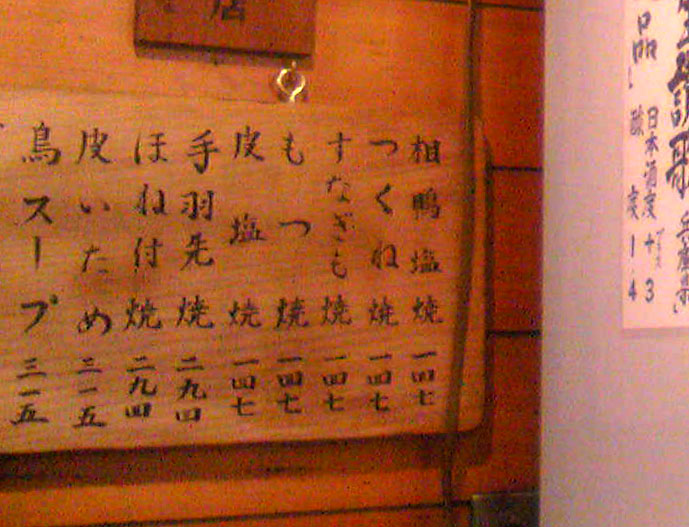 店
相鴨塩焼 一四七
つくね焼 一四七
すなぎも焼 一四七
もつ焼 一四七
皮塩焼 一四七
手羽先焼 二九四
ほね付焼 二九四
皮いため 三一五
鳥スープ 三一五
品
日本酒度 +3
酸度 1.4